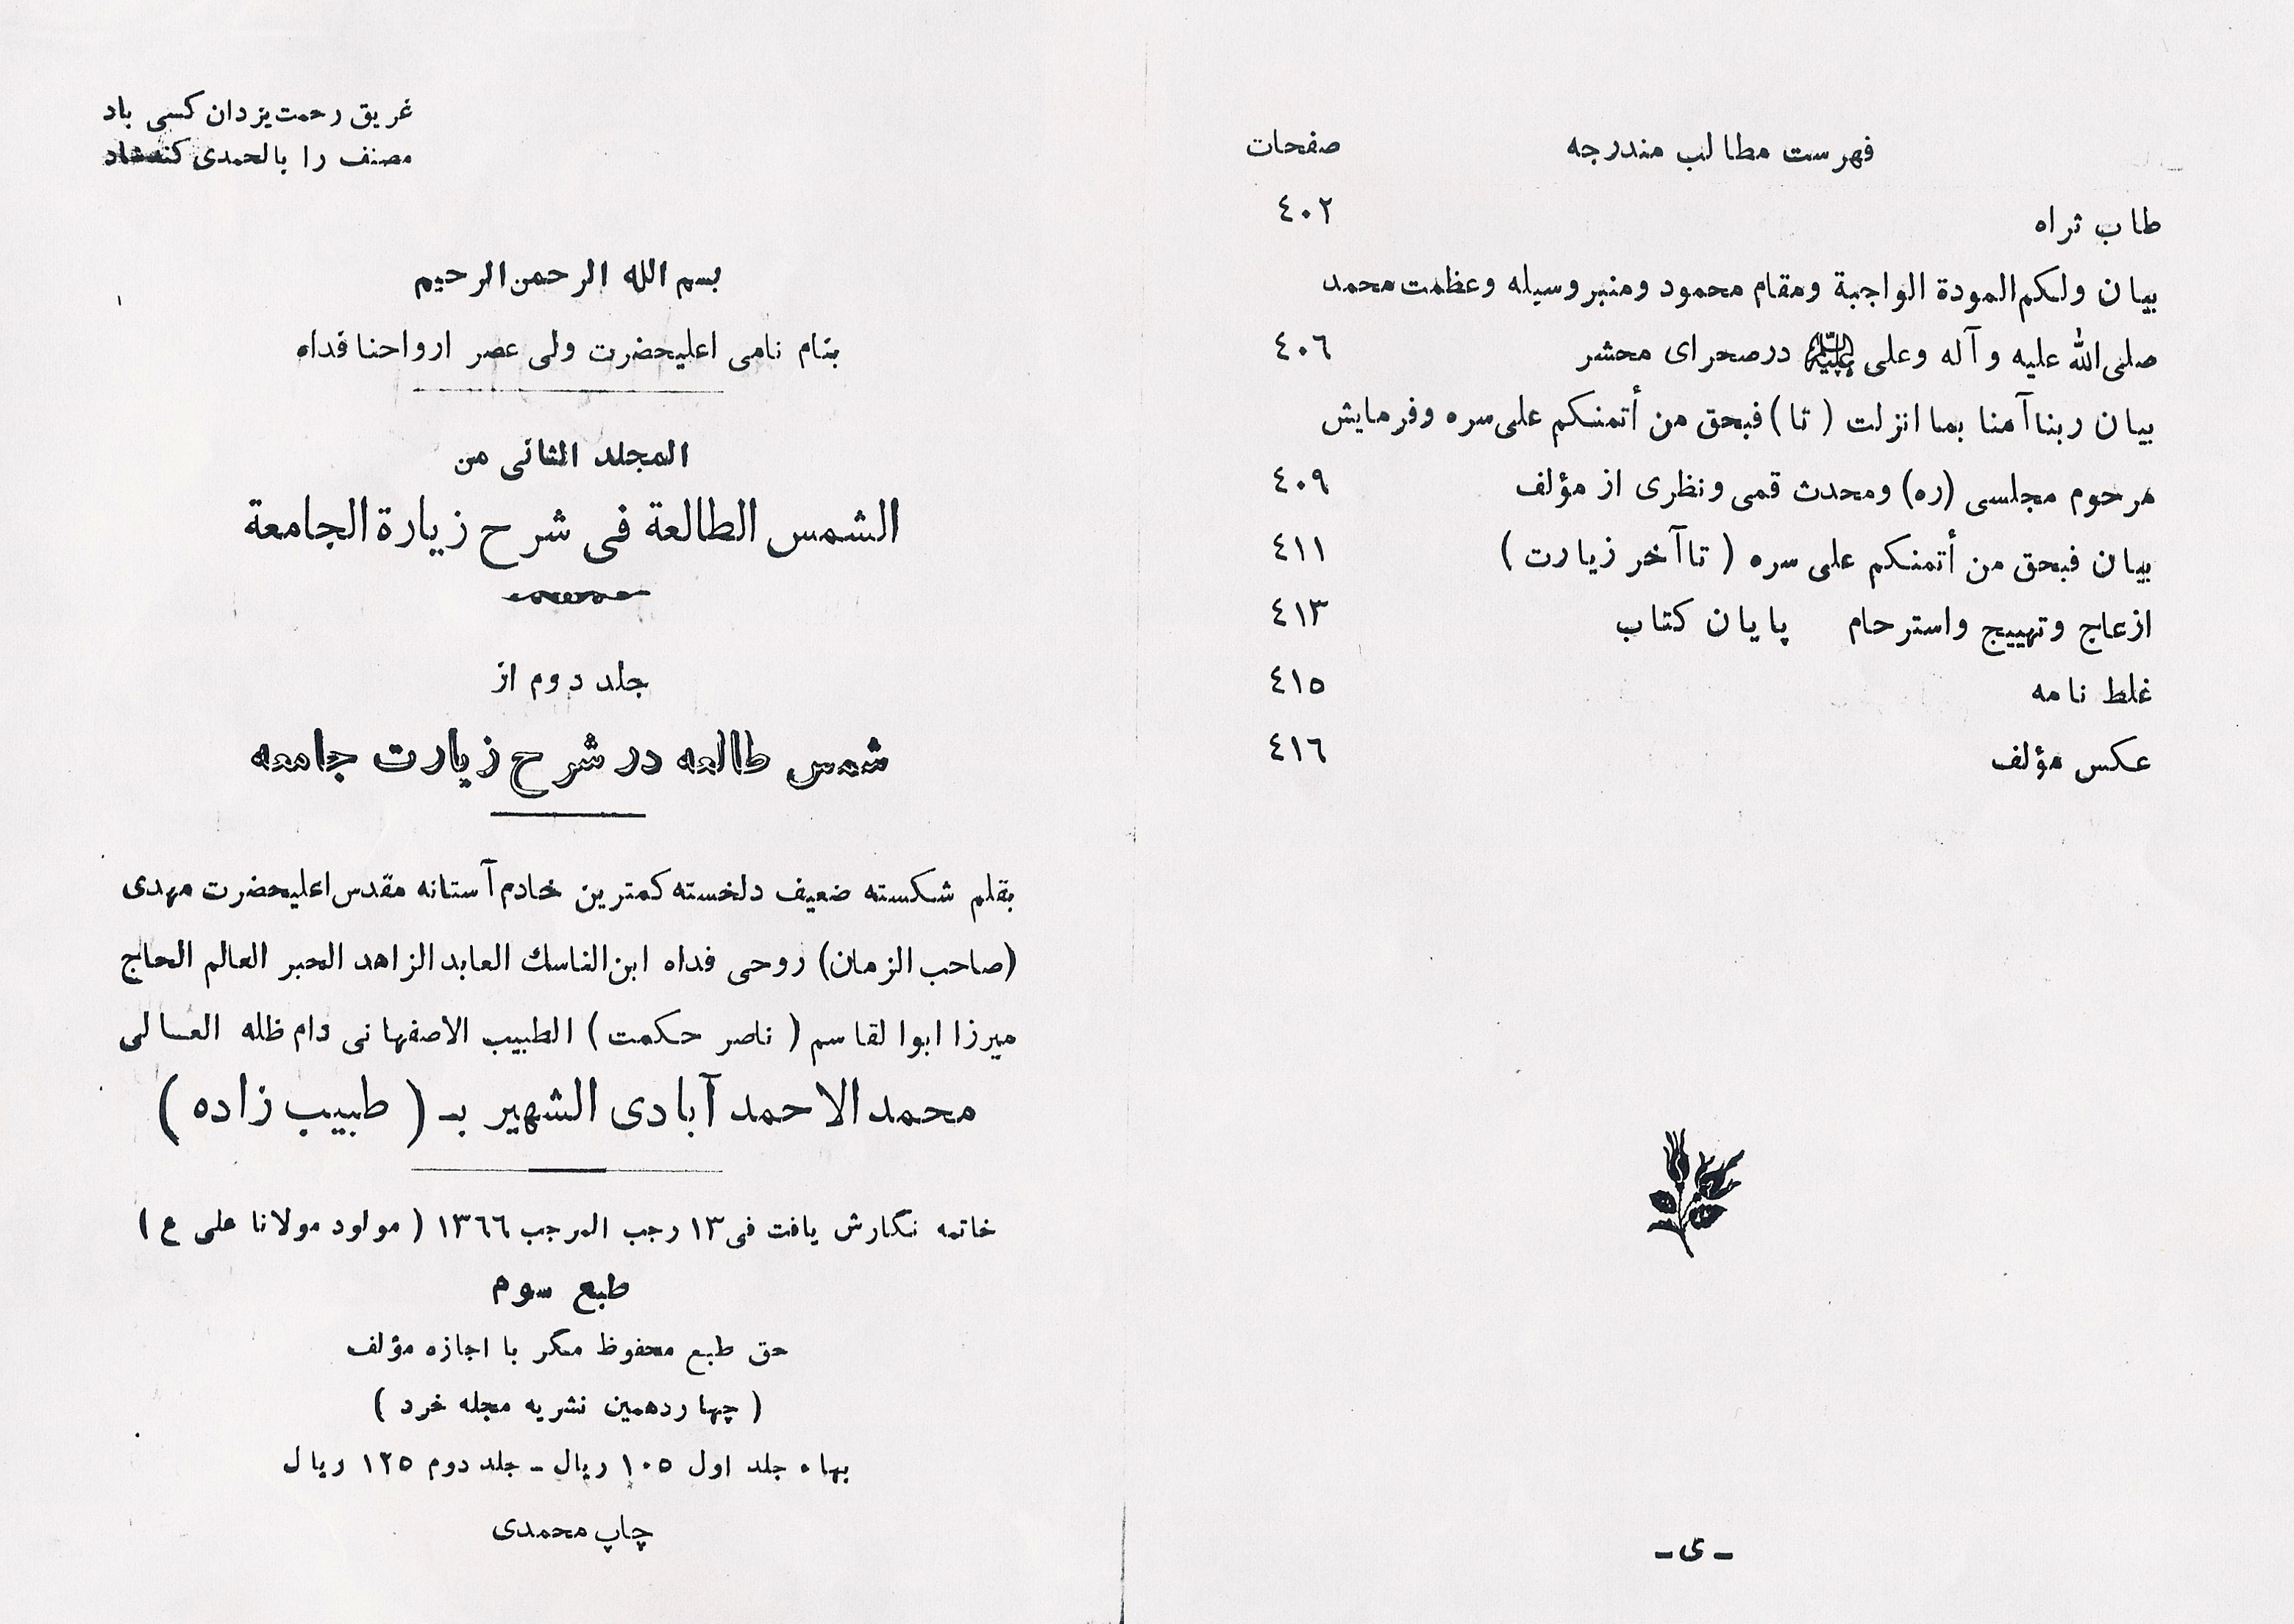 فهرست مطالب مندرجه صفحات
طاب ثراه ٤٠٢
بیان ولکم المودة الواجبة ومقام محمود ومنبر وسیله وعظمت محمد
صلی الله علیه وآله وعلی علیه السلام درصحرای محشر ٤٠٦
بیان ربناآمنا بما انزلت ( تا ) فبحق من أتمنکم علی سره وفرمایش
مرحوم مجلسی (ره) ومحدث قمی ونظری از مؤلف ٤٠٩
بیان فبحق من أتمنکم علی سره ( تاآخر زیارت ) ٤١١
ازعاج وتهییج واسترحام پایان کتاب ٤١٣
غلط نامه ٤١٥
عکس مؤلف ٤١٦
ـ ی ـ
غریق رحمت یزدان کسی باد
مصنف را بالحمدی کند
بسم الله الرحمن الرحیم
بنام نامی اعلیحضرت ولی عصر ارواحنا فداه
المجلد الثانی من
الشمس الطالعة فی شرح زیارة الجامعة
جلد دوم از
شمس طالعه در شرح زیارت جامعه
بقلم شکسته ضعیف دلخسته کمترین خادم آستانه مقدس اعلیحضرت مهدی
(صاحب الزمان) روحی فداه ابن الناسك العابد الزاهد الحبر العالم الحاج
میرزا ابوالقاسم ( ناصر حکمت ) الطبیب الاصفهانی دام ظله العالی
محمد الاحمد آبادی الشهیر بـ ( طبیب زاده )
خاتمه نگارش یافت فی ١٣ رجب المرجب ١٣٦٦ ( مولود مولانا علی ع )
طبع سوم
حق طبع محفوظ مگر با اجازه مؤلف
( چهاردهمین نشریه مجله خرد )
بهاء جلد اول ١٠٥ ریال ـ جلد دوم ١٢٥ ریال
چاپ محمدی